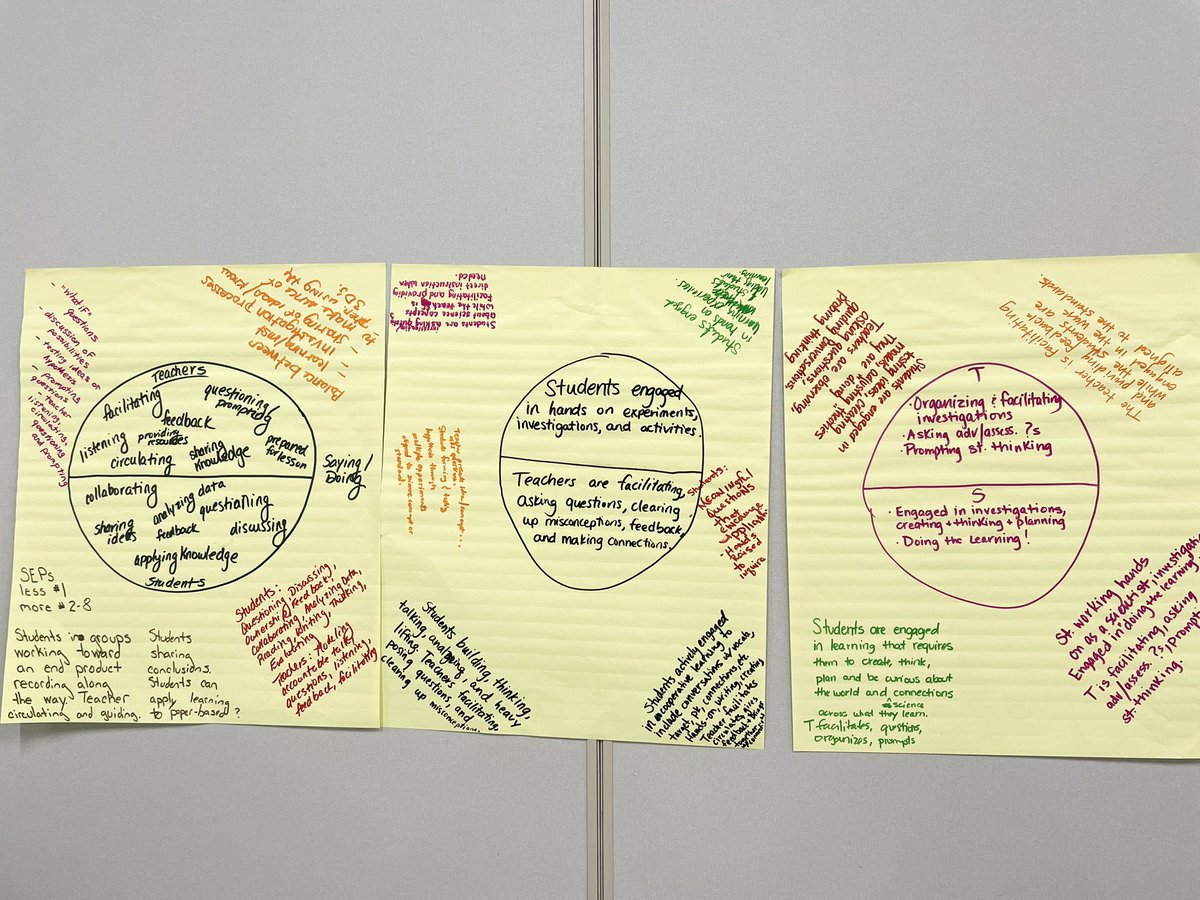 - "What if"
questions
- discussion of
possibilities
- testing ideas or
hypothesis
- prompting
questions
- teacher
listening,
circulating,
questioning
and prompting
Balance between
- learning/inst
- investigation processes
Teachers
facilitating
questioning/
prompting
feedback
listening
providing
resources
sharing
knowledge
prepared
for lesson
circulating
Saying/
Doing
collaborating
analyzing data
questioning
sharing
ideas
feedback
discussing
applying knowledge
Students
SEPs
less #1
more #2-8
Students in groups
working toward
an end product
recording along
the way. Teacher
circulating and guiding.
Students
sharing
conclusions.
Students can
apply learning
to paper-based?
Students:
Questioning, Discussing,
Ownership, Feedback,
Collaborating, Analyzing Data,
Reading, Writing, Thinking,
Evaluating
Teachers: Modeling
accountable talk,
questions, listening,
feedback, facilitating
Students are asking questions
about science concepts
while the teacher is
facilitating and providing
direct instruction when
needed.
Students engaged
in hands on
learning experiences
Students engaged
in hands on experiments,
investigations, and activities.
Teachers are facilitating,
asking questions, clearing
up misconceptions, feedback,
and making connections.
Students:
meaningful
questions
that
Hands
raised
to
inquire
Students building, thinking,
talking, analyzing, and heavy
lifting. Teachers facilitating,
posing questions, and
clearing up misconceptions.
Students actively engaged
in cooperative learning to
include conversations w/vocab,
connections, etc.
Hands-on, writing, creating
Teacher facilitates,
circulates, gives
feedback
Students are engaged in
testing ideas, creating
models, adjusting theories
They are doing!
Teachers are observing,
asking questions,
guiding conversations,
probing thinking
The teacher is facilitating
and providing feedback
while the students are
engaged in the work
aligned to the standards.
T
· Organizing & facilitating
investigations
· Asking adv/assess. ?s
· Prompting st. thinking
S
· Engaged in investigations,
creating + thinking + planning
· Doing the learning!
Students are engaged
in learning that requires
them to create, think,
plan and be curious about
the world and connections
science
across what they learn.
T facilitates, questions,
organizes, prompts
St. working hands
on as a scientist, investigating
Engaged in doing the learning
T is facilitating, asking
adv/assess. ?s, prompting
st. thinking.